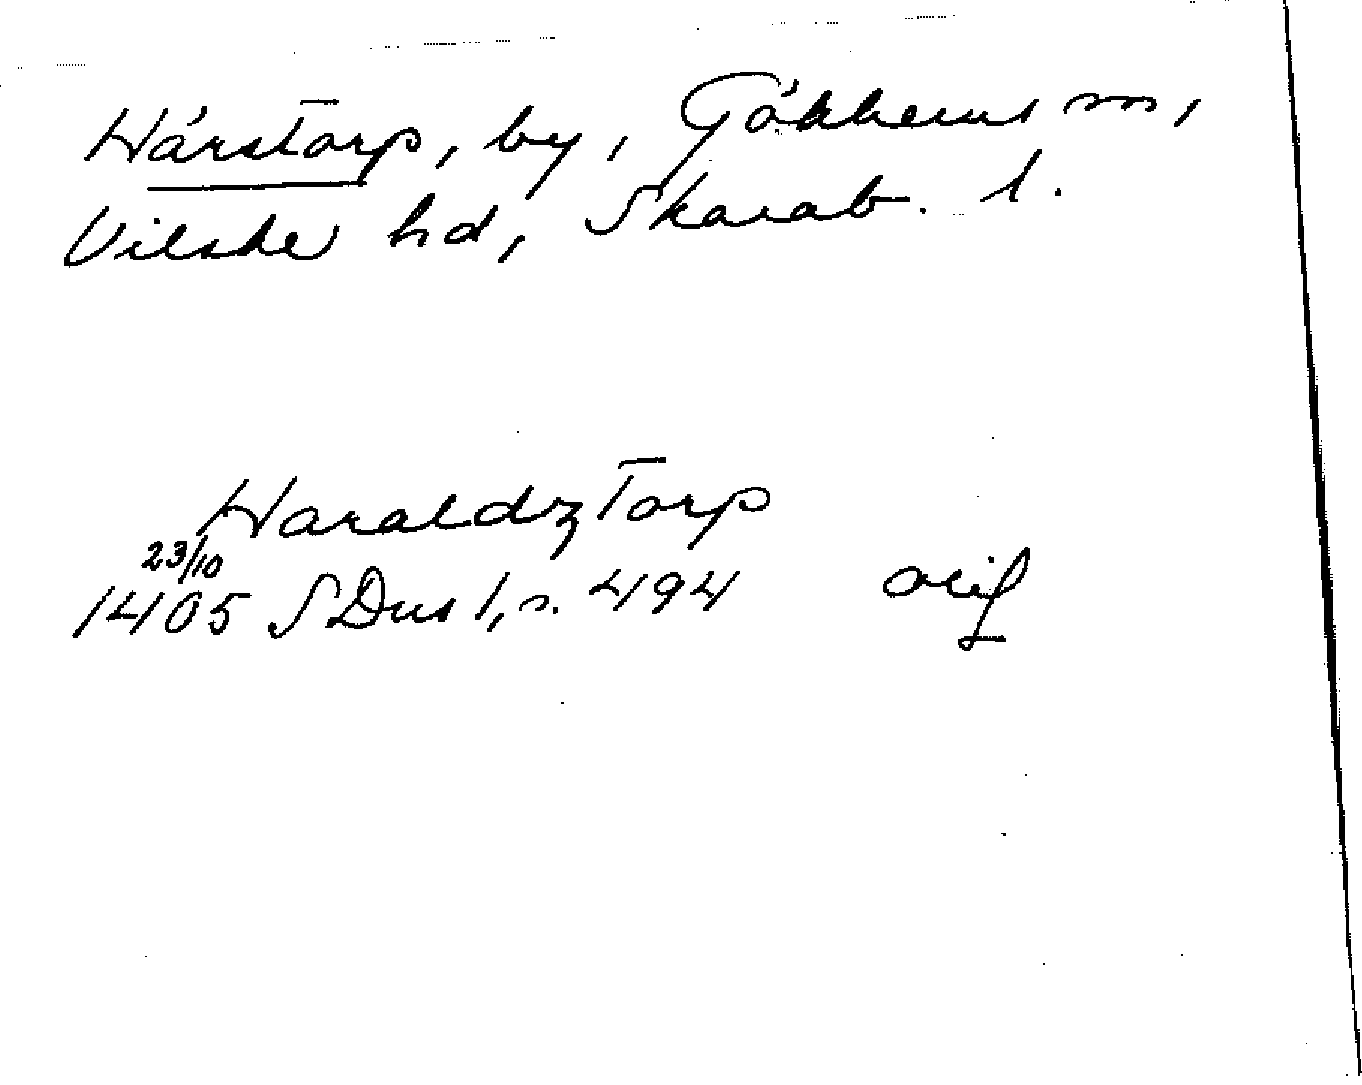 Hårstorp, by, Gökhems sn,
Vilske hd, Skarab. l.
Haraldz Torp
23/10
1405 SDns 1, s. 494 orig